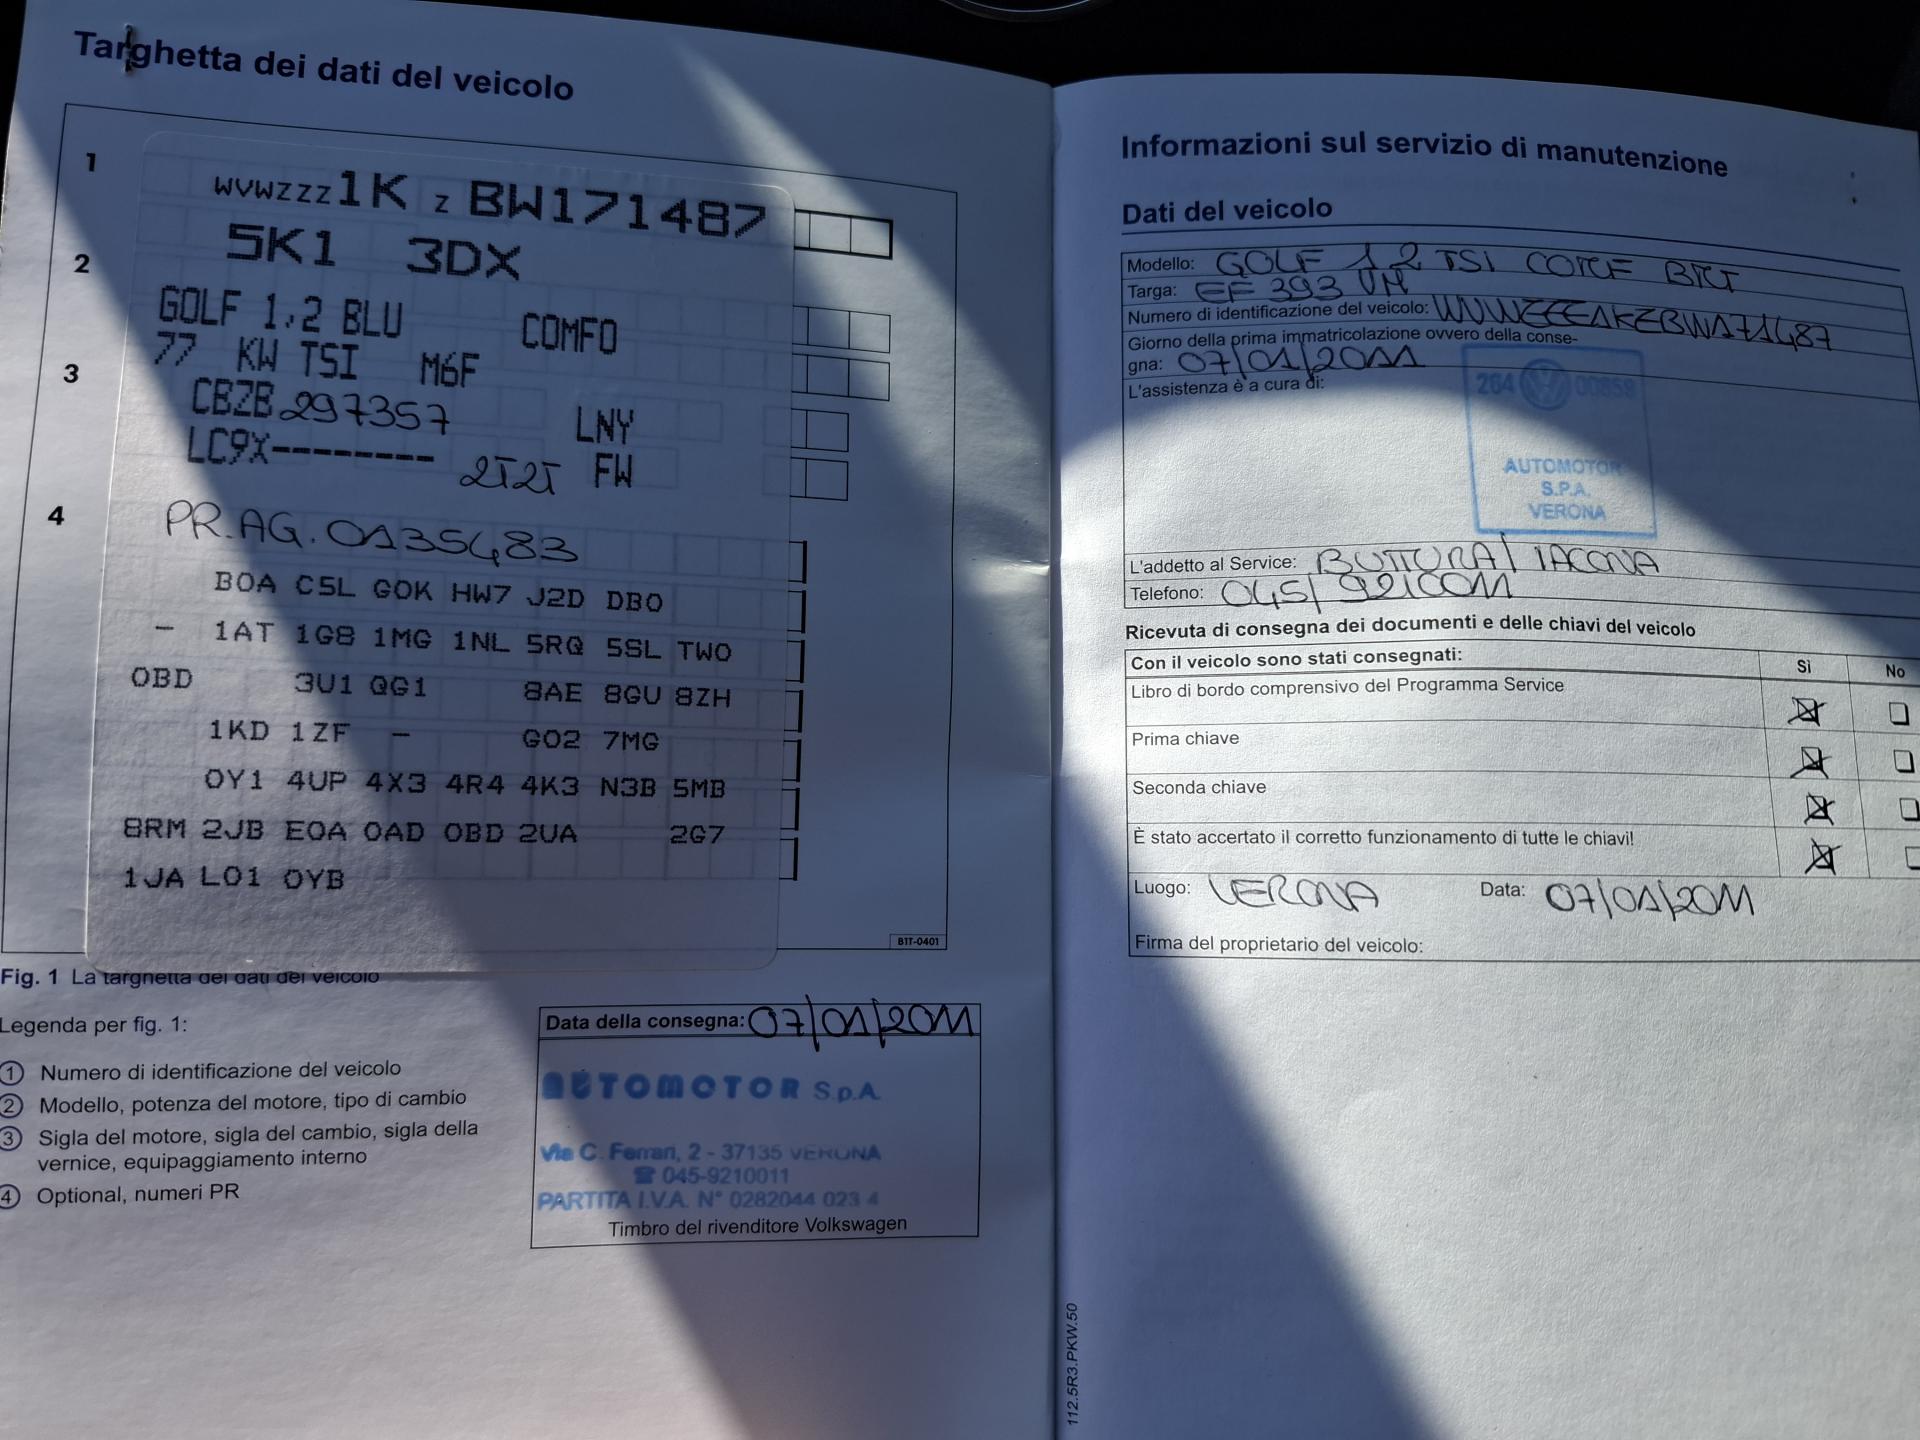 Targhetta dei dati del veicolo
1
WVWZZZ1K Z BW171487
2
5K1 3DX
GOLF 1,2 BLU COMFO
3
77 KW TSI M6F
CBZB 297357 LNY
LC9X-------- 2T2T FW
4
PR.AG.0135483
B0A C5L G0K HW7 J2D DB0
- 1AT 1G8 1MG 1NL 5RQ 5SL TW0
0BD 3U1 QG1 8AE 8GU 8ZH
1KD 1ZF - G02 7MG
0Y1 4UP 4X3 4R4 4K3 N3B 5MB
8RM 2JB E0A 0AD 0BD 2UA 2G7
1JA L01 0YB
B1T-0401
Fig. 1 La targhetta dei dati del veicolo
Legenda per fig. 1:
1 Numero di identificazione del veicolo
2 Modello, potenza del motore, tipo di cambio
3 Sigla del motore, sigla del cambio, sigla della
vernice, equipaggiamento interno
4 Optional, numeri PR
Data della consegna: 07/01/2011
AUTOMOTOR S.p.A.
Via C. Ferrari, 2 - 37135 VERONA
☎ 045-9210011
PARTITA I.V.A. N° 0282044 023 4
Timbro del rivenditore Volkswagen
Informazioni sul servizio di manutenzione
Dati del veicolo
Modello: GOLF 1 2 TSI
Targa: EF 393 VM
Numero di identificazione del veicolo: WVWZZZ1KZBW171487
Giorno della prima immatricolazione ovvero della conse-
gna: 07/01/2011
L'assistenza è a cura di:
264 00859
AUTOMOTOR
S.P.A.
VERONA
L'addetto al Service: BUTTURA/ IACONA
Telefono: 045/9210011
Ricevuta di consegna dei documenti e delle chiavi del veicolo
Con il veicolo sono stati consegnati: Sì No
Libro di bordo comprensivo del Programma Service
Prima chiave
Seconda chiave
È stato accertato il corretto funzionamento di tutte le chiavi!
Luogo: VERONA Data: 07/01/2011
Firma del proprietario del veicolo:
112.5R3.PKW.50